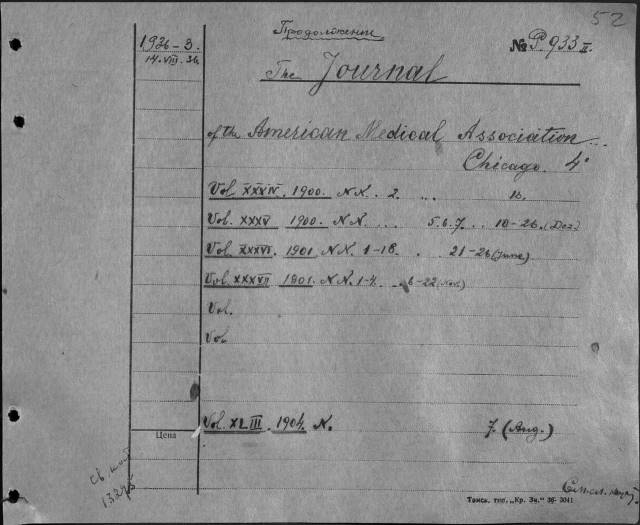 52
Продолженіе
1936-3.
14.VIII.36.
№ P. 933 II.
The Journal
of the American Medical Association...
Chicago. 4°
Vol. XXXIV. 1900. NN. 2. .. 18.
Vol. XXXV 1900. NN. ... 5.6.7. .. 10-26. (Dez)
Vol. XXXVI. 1901 NN. 1-18. . 21-26 (June)
Vol XXXVII 1901. NN. 1-4. . 6-22 (Nov.)
Vol.
Vol.
Vol. XLIII. 1904. N. 7. (Aug.)
Цена
св. кат
13245
Томск. тип. „Кр. Зн.“ 36- 3041